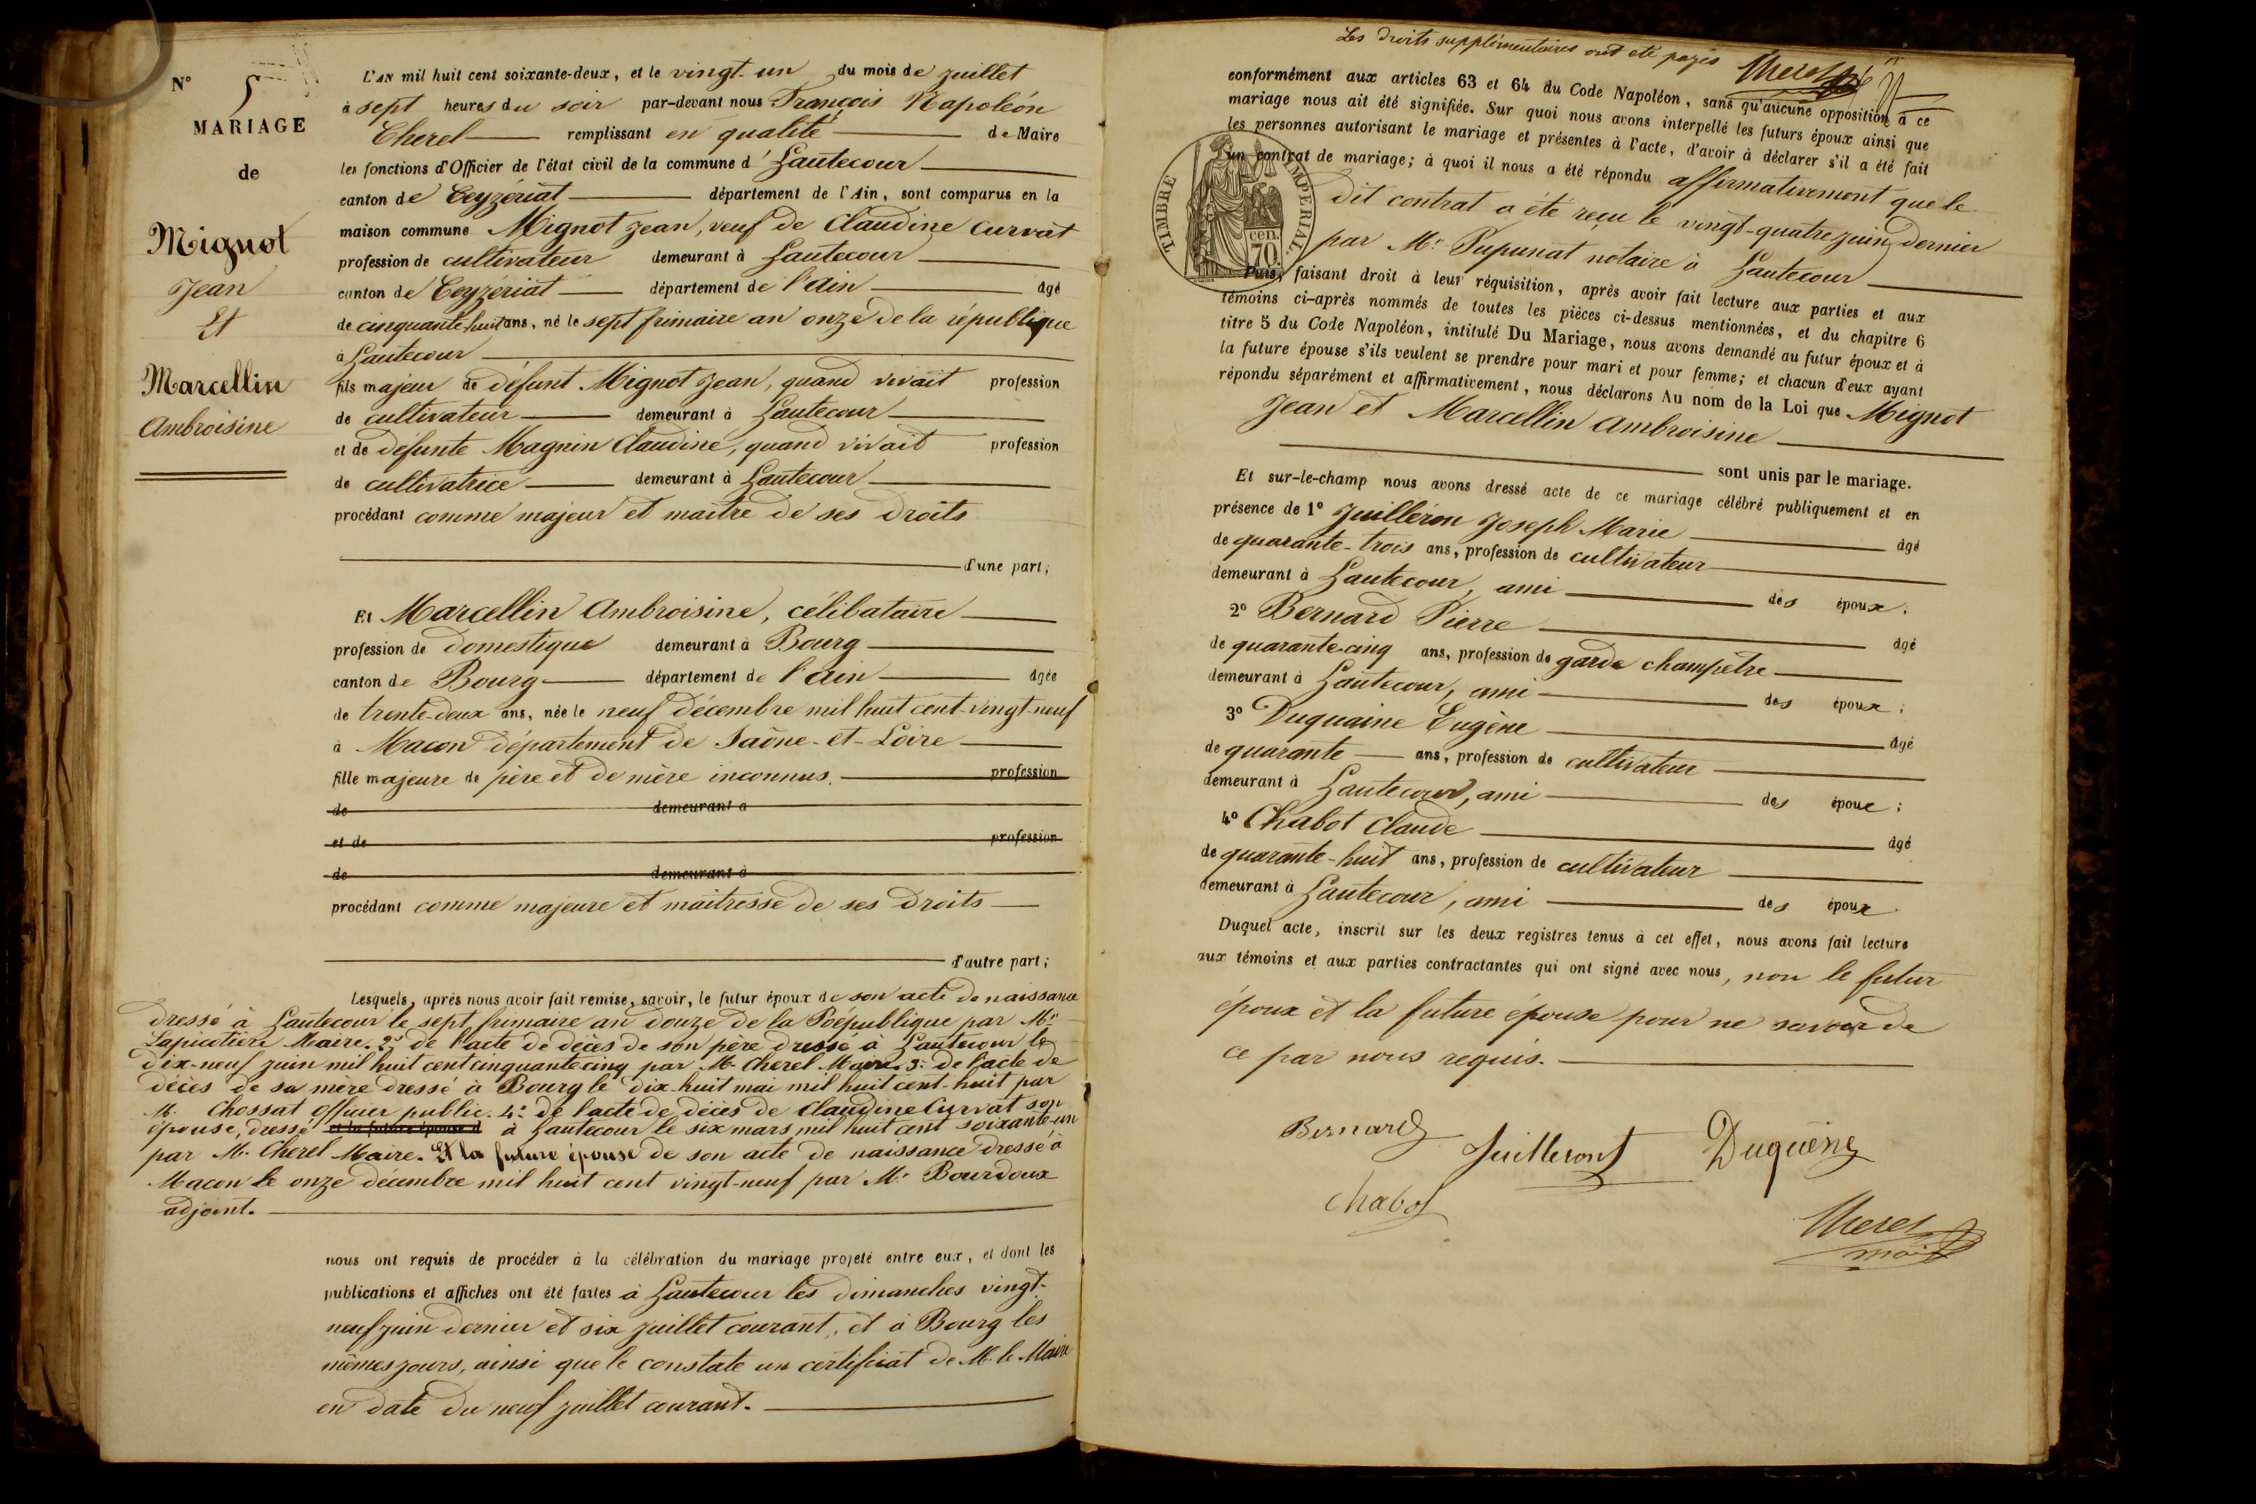 N° 5
MARIAGE
de
Mignot
Jean
Et
Marcellin
Ambroisine
L'AN mil huit cent soixante-deux, et le vingt-un du mois de juillet
à sept heures du soir par-devant nous François Napoléon
Cherel remplissant en qualité de Maire
les fonctions d'Officier de l'état civil de la commune d'Hautecour
canton de Ceyzériat département de l'Ain, sont comparus en la
maison commune Mignot Jean, veuf de Claudine Curvat
profession de cultivateur demeurant à Hautecour
canton de Ceyzériat département de l'Ain âgé
de cinquante-huit ans, né le sept frimaire an onze de la république
à Hautecour
fils majeur de défunt Mignot Jean, quand vivait profession
de cultivateur demeurant à Hautecour
et de défunte Magnin Claudine, quand vivait profession
de cultivatrice demeurant à Hautecour
procédant comme majeur et maitre de ses droits
d'une part;
Et Marcellin Ambroisine, célibataire
profession de domestique demeurant à Bourg
canton de Bourg département de l'Ain âgée
de trente-deux ans, née le neuf décembre mil huit cent-vingt-neuf
à Macon département de Saône-et-Loire
fille majeure de père et de mère inconnus. profession
de demeurant à
et de profession
de demeurant à
procédant comme majeure et maitresse de ses droits
d'autre part;
Lesquels, après nous avoir fait remise, savoir, le futur époux de son acte de naissance
dressé à Hautecour le sept frimaire an douze de la République par Mr
Lapicotière Maire. 2° de l'acte de décès de son père dressé à Hautecour le
dix-neuf juin mil huit cent cinquante cinq par M. Cherel Maire. 3° de l'acte de
décès de sa mère dressé à Bourg le dix-huit mai mil huit cent-huit par
M. Chossat Officier public. 4° de l'acte de décès de Claudine Curvat son
épouse, dressé et la future épouse d à Hautecour le six mars mil huit cent soixante-un
par M. Cherel Maire. Et la future épouse de son acte de naissance dressé à
Macon le onze décembre mil huit cent vingt-neuf par Mr Bourdoux
adjoint.
nous ont requis de procéder à la célébration du mariage projeté entre eux, et dont les
publications et affiches ont été faites à Hautecour les dimanches vingt-
neuf juin dernier et six juillet courant, et à Bourg les
mêmes jours, ainsi que le constate un certificat de M. le Maire
en date du neuf juillet courant.
Les droits supplémentaires ont été payés Cherel
conformément aux articles 63 et 64 du Code Napoléon, sans qu'aucune opposition à ce
mariage nous ait été signifiée. Sur quoi nous avons interpellé les futurs époux ainsi que
les personnes autorisant le mariage et présentes à l'acte, d'avoir à déclarer s'il a été fait
un contrat de mariage; à quoi il nous a été répondu affirmativement que le
dit contrat a été reçu le vingt-quatre juin dernier
par Mr Pupunat notaire à Hautecour
TIMBRE IMPERIAL
70 cen.
Puis, faisant droit à leur réquisition, après avoir fait lecture aux parties et aux
témoins ci-après nommés de toutes les pièces ci-dessus mentionnées, et du chapitre 6
titre 5 du Code Napoléon, intitulé Du Mariage, nous avons demandé au futur époux et à
la future épouse s'ils veulent se prendre pour mari et pour femme; et chacun d'eux ayant
répondu séparément et affirmativement, nous déclarons Au nom de la Loi que Mignot
Jean et Marcellin Ambroisine
sont unis par le mariage.
Et sur-le-champ nous avons dressé acte de ce mariage célébré publiquement et en
présence de 1° Juilléron Joseph Marie âgé
de quarante-trois ans, profession de cultivateur
demeurant à Hautecour, ami des époux;
2° Bernard Pierre âgé
de quarante-cinq ans, profession de garde champêtre
demeurant à Hautecour, ami des époux;
3° Duquaine Eugène âgé
de quarante ans, profession de cultivateur
demeurant à Hautecour, ami des époux;
4° Chabot Claude âgé
de quarante-huit ans, profession de cultivateur
demeurant à Hautecour, ami des époux
Duquel acte, inscrit sur les deux registres tenus à cet effet, nous avons fait lecture
aux témoins et aux parties contractantes qui ont signé avec nous, non le futur
époux et la future épouse pour ne savoir de
ce par nous requis.
Bernard Juilleront Duquêne
Chabot
Cherel
maire